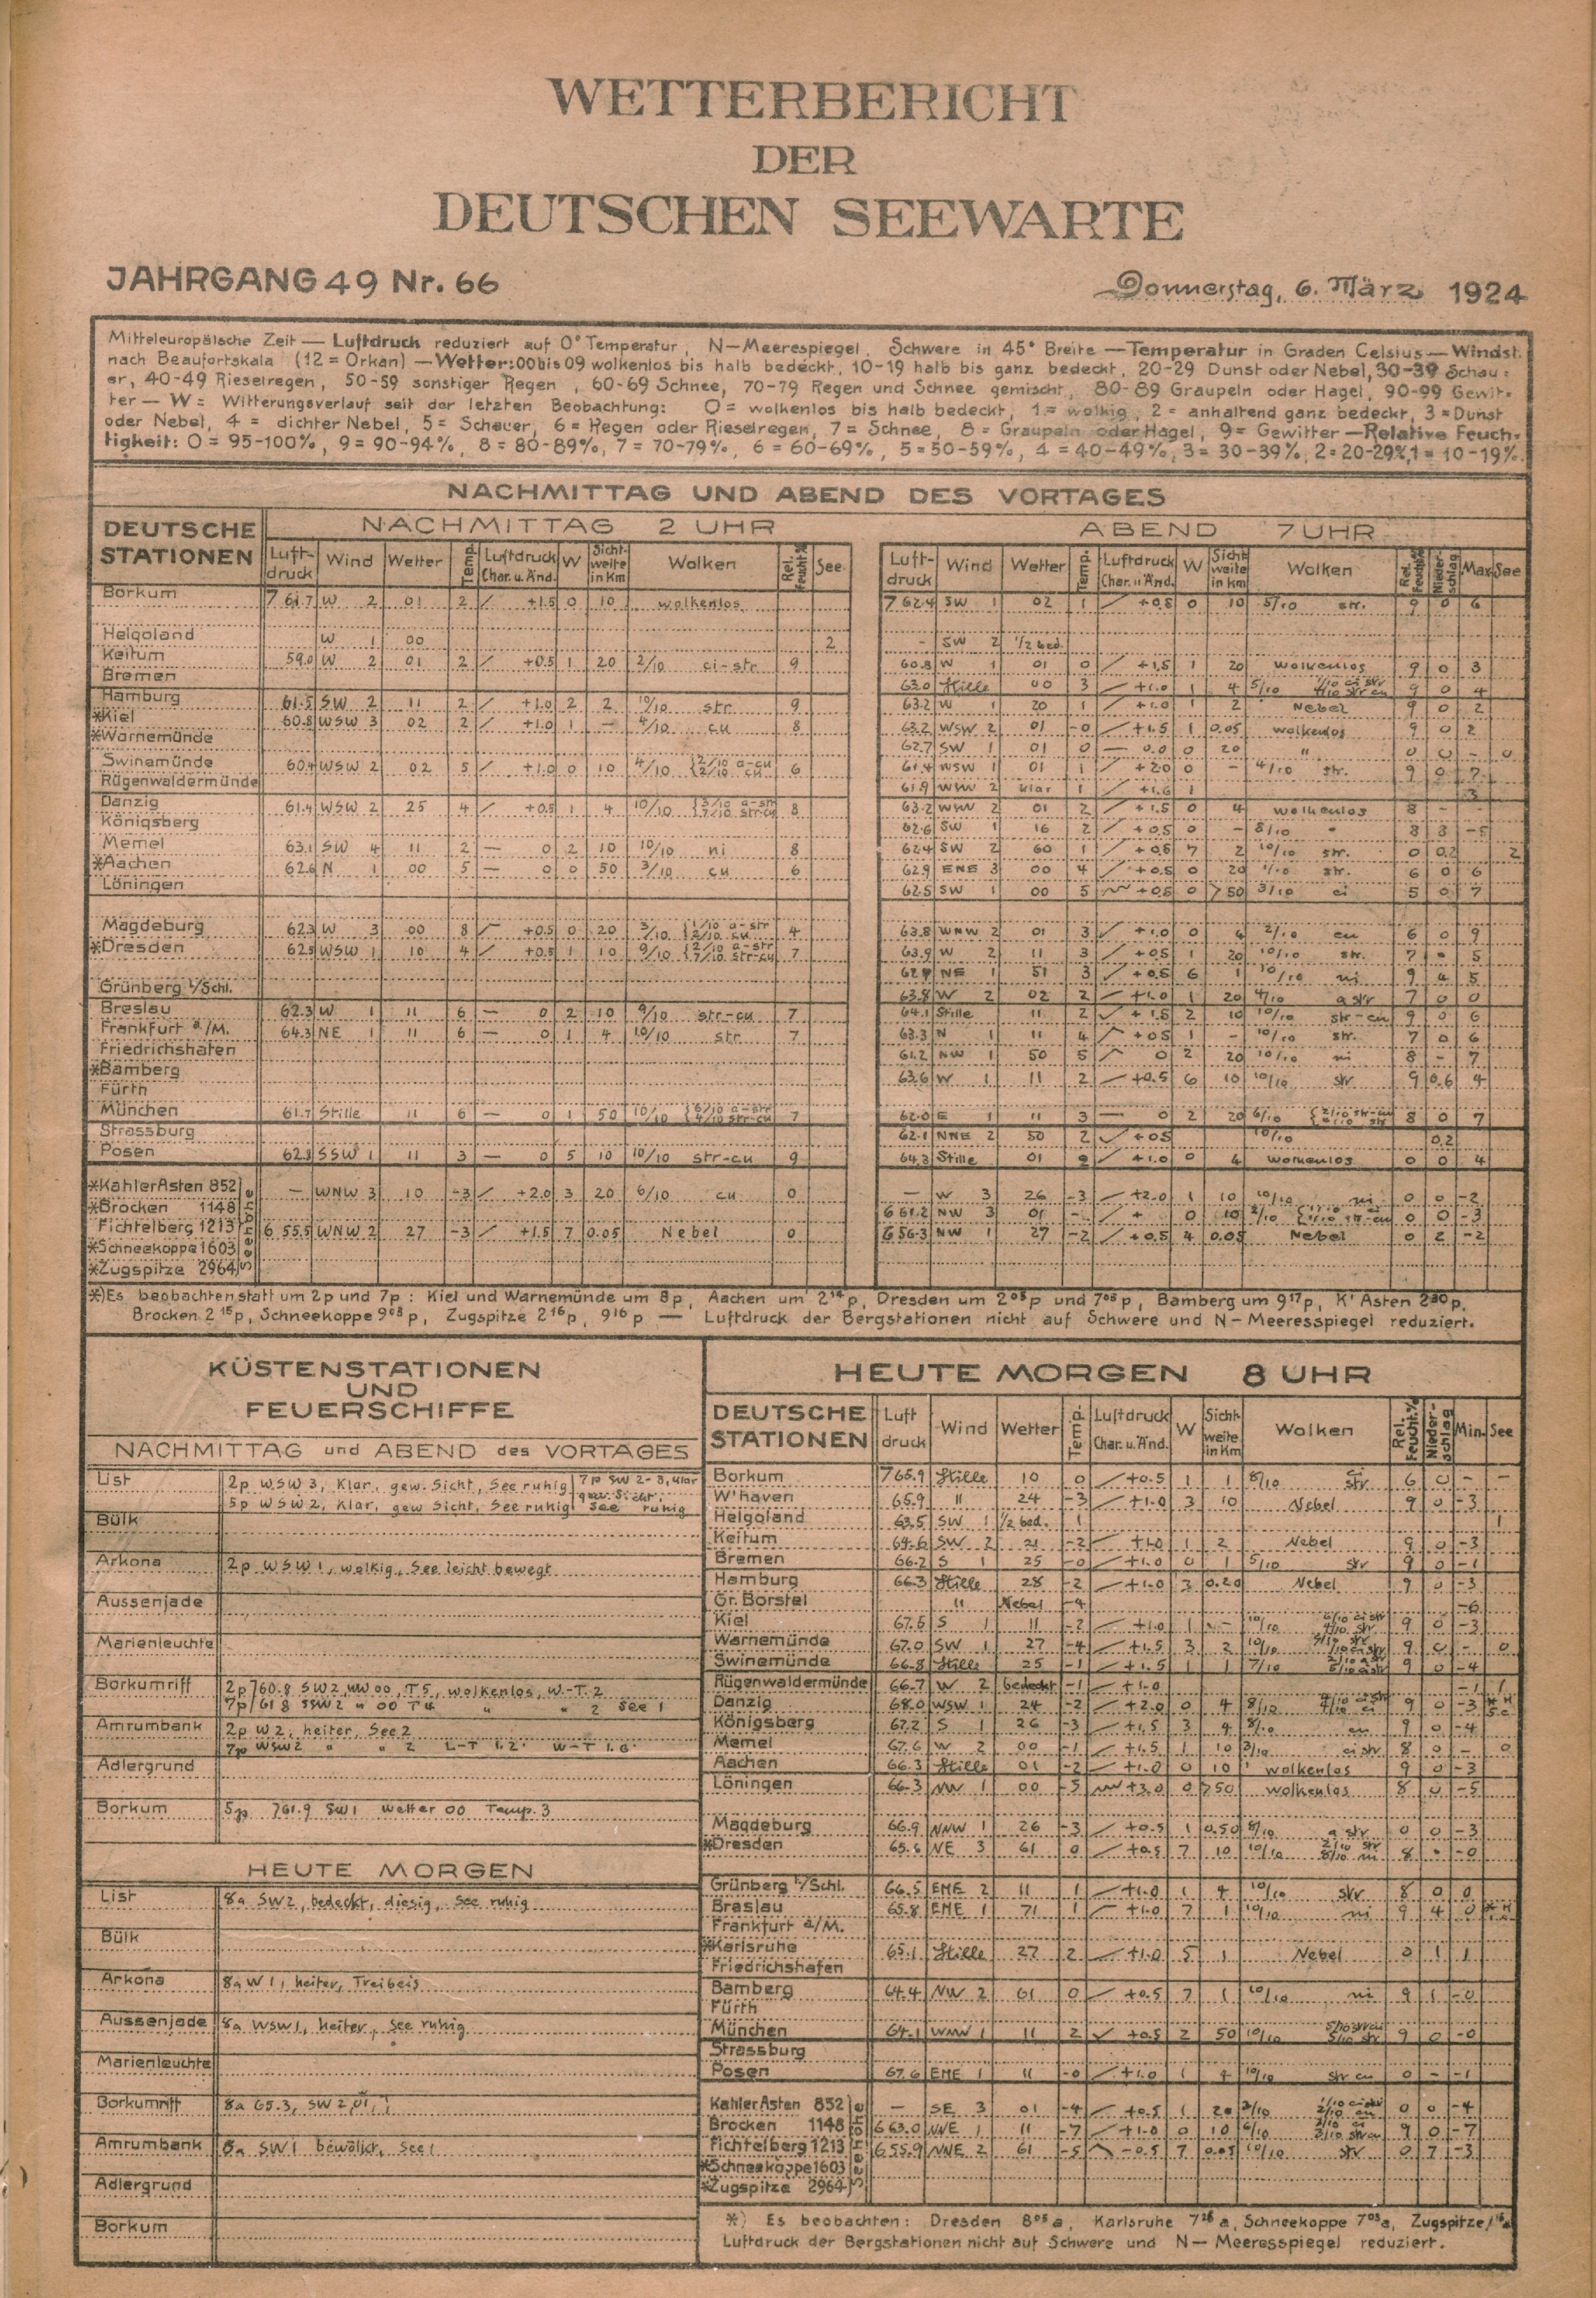 WETTERBERICHT
DER
DEUTSCHEN SEEWARTE
JAHRGANG 49 Nr. 66 Donnerstag, 6. März 1924
Mitteleuropäische Zeit — Luftdruck reduziert auf 0° Temperatur, N—Meerespiegel, Schwere in 45° Breite — Temperatur in Graden Celsius — Windst.
nach Beaufortskala (12 = Orkan) — Wetter: 00 bis 09 wolkenlos bis halb bedeckt, 10-19 halb bis ganz bedeckt, 20-29 Dunst oder Nebel, 30-39 Schau-
er, 40-49 Rieselregen, 50-59 sonstiger Regen, 60-69 Schnee, 70-79 Regen und Schnee gemischt, 80-89 Graupeln oder Hagel, 90-99 Gewit-
ter — W = Witterungsverlauf seit der letzten Beobachtung: 0 = wolkenlos bis halb bedeckt, 1 = wolkig, 2 = anhaltend ganz bedeckt, 3 = Dunst
oder Nebel, 4 = dichter Nebel, 5 = Schauer, 6 = Regen oder Rieselregen, 7 = Schnee, 8 = Graupeln oder Hagel, 9 = Gewitter — Relative Feuch-
tigkeit: 0 = 95-100%, 9 = 90-94%, 8 = 80-89%, 7 = 70-79%, 6 = 60-69%, 5 = 50-59%, 4 = 40-49%, 3 = 30-39%, 2 = 20-29%, 1 = 10-19%.
NACHMITTAG UND ABEND DES VORTAGES
DEUTSCHE STATIONEN NACHMITTAG 2 UHR ABEND 7 UHR
Luftdruck Wind Wetter Temp. Luftdruck Char. u. Änd. W Sichtweite in Km Wolken Rel. Feucht.% See Luftdruck Wind Wetter Temp. Luftdruck Char. u. Änd. W Sichtweite in Km Wolken Rel. Feucht.% Niederschlag Max. See
Borkum 761.7 W 2 01 2 +1.5 0 10 wolkenlos 762.4 SW 1 02 1 +0.8 0 10 5/10 str. 9 0 6
Helgoland W 1 00 2 – SW 2 1/2 bed.
Keitum 59.0 W 2 01 2 +0.5 1 20 2/10 ci-str 9 60.8 W 1 01 0 +1.5 1 20 wolkenlos 9 0 3
Bremen 63.0 Stille 00 3 +1.0 1 4 5/10 9 0 4
Hamburg 61.5 SW 2 11 2 +1.0 2 2 10/10 str 9 63.2 W 1 20 1 +1.0 1 2 Nebel 9 0 2
*Kiel 60.8 WSW 3 02 2 +1.0 1 — 4/10 cu 8 63.2 WSW 2 01 -0 +1.5 1 0.05 wolkenlos 9 0 2
*Warnemünde 62.7 SW 1 01 0 — 0.0 0 20 " 0 0 - 0
Swinemünde 60.4 WSW 2 02 5 +1.0 0 10 4/10 2/10 a-cu 2/10 cu 6 61.4 WSW 1 01 1 +2.0 0 - 4/10 str. 9 0 7
Rügenwaldermünde 61.9 WSW 2 klar 1 +1.6 1 3
Danzig 61.4 WSW 2 25 4 +0.5 1 4 10/10 3/10 a-str 7/10 str-cu 8 63.2 WSW 2 01 2 +1.5 0 4 wolkenlos 8 -
Königsberg 62.6 SW 1 16 2 +0.5 0 - 8/10 8 3 -5
Memel 63.1 SW 4 11 2 — 0 2 10 10/10 ni 8 62.4 SW 2 60 1 +0.8 7 2 10/10 str. 0 0.2 2
*Aachen 62.6 N 1 00 5 — 0 0 50 3/10 cu 6 62.9 ENE 3 00 4 +0.5 0 20 str. 6 0 6
Löningen 62.5 SW 1 00 5 +0.8 0 >50 3/10 ci 5 0 7
Magdeburg 62.3 W 3 00 8 +0.5 0 20 3/10 1/10 a-str 2/10 cu 4 63.8 WNW 2 01 3 +1.0 0 4 2/10 cu 6 0 9
*Dresden 62.5 WSW 1 10 4 +0.5 1 10 9/10 2/10 a-str 7/10 str-cu 7 63.9 W 2 11 3 +0.5 1 20 10/10 str. 7 • 5
NE 1 51 3 +0.5 6 1 10/10 ni 9 4 5
Grünberg i/Schl. 63.8 W 2 02 2 +1.0 1 20 4/10 a str 7 0 0
Breslau 62.3 W 1 11 6 — 0 2 10 9/10 str-cu 7 64.1 Stille 11 2 +1.5 2 10 10/10 str-cu 9 0 6
Frankfurt a/M. 64.3 NE 1 11 6 — 0 1 4 10/10 str 7 63.3 N 1 11 4 +0.5 1 - 10/10 str. 7 0 6
Friedrichshafen 61.2 NW 1 50 5 0 2 20 10/10 ni 8 - 7
*Bamberg 63.6 W 1 11 2 +0.5 6 10 10/10 str 9 0.6 4
Fürth
München 61.7 Stille 11 6 — 0 1 50 10/10 6/10 a-str 4/10 str-cu 7 62.0 E 1 11 3 — 0 2 20 6/10 8 0 7
Strassburg 62.1 NNE 2 50 2 +0.5 10/10 0.2
Posen 62.8 SSW 1 11 3 — 0 5 10 10/10 str-cu 9 64.3 Stille 01 +1.0 0 4 wolkenlos 0 0 4
*Kahler Asten 852 — WNW 3 10 -3 +2.0 3 20 6/10 cu 0 — W 3 26 -3 +2.0 1 10 10/10 ni 0 0 -2
*Brocken 1148 661.2 NW 3 01 - + 0 10 2/10 0 0 -3
Fichtelberg 1213 655.5 WNW 2 27 -3 +1.5 7 0.05 Nebel 0 656.3 NW 1 27 -2 +0.5 4 0.05 Nebel 0 2 -2
*Schneekoppe 1603
*Zugspitze 2964
Seehöhe
*) Es beobachten statt um 2p und 7p: Kiel und Warnemünde um 8p, Aachen um 2¹⁴p, Dresden um 2⁰⁵p und 7⁰⁵p, Bamberg um 9¹⁷p, K' Asten 2³⁰p,
Brocken 2¹⁵p, Schneekoppe 9⁰³p, Zugspitze 2¹⁶p, 9¹⁶p — Luftdruck der Bergstationen nicht auf Schwere und N—Meeresspiegel reduziert.
KÜSTENSTATIONEN
UND
FEUERSCHIFFE
NACHMITTAG und ABEND des VORTAGES
List 2p WSW 3, Klar, gew. Sicht, See ruhig 7p SW 2-3, klar
5p WSW 2, Klar, gew Sicht, See ruhig gew. Sicht, See ruhig
Bülk
Arkona 2p WSW 1, wolkig, See leicht bewegt
Aussenjade
Marienleuchte
Borkumriff 2p 760.8 SW 2, 00, T 5, wolkenlos, W.-T. 2
7p 61.8 SSW 2 " 00 T 4 " " 2 See 1
Amrumbank 2p W 2, heiter, See 2
7p WSW 2 " " 2 L-T 1.2 W-T 1.6
Adlergrund
Borkum 5p 761.9 SW 1 Wetter 00 Temp. 3
HEUTE MORGEN
List 8a SW 2, bedeckt, diesig, See ruhig
Bülk
Arkona 8a W 1, heiter, Treibeis
Aussenjade 8a WSW 1, heiter, See ruhig
Marienleuchte
Borkumriff 8a 65.3, SW 2
Amrumbank 8a SW 1 bewölkt, See 1
Adlergrund
Borkum
HEUTE MORGEN 8 UHR
DEUTSCHE STATIONEN Luftdruck Wind Wetter Temp. Luftdruck Char. u. Änd. W Sichtweite in Km Wolken Rel. Feucht.% Niederschlag Min. See
Borkum 765.9 Stille 10 0 +0.5 1 1 8/10 ci str 6 0 - -
W'haven 65.9 " 24 -3 +1.0 3 10 Nebel 9 0 -3
Helgoland 63.5 SW 1 1/2 bed. 1 1
Keitum 64.6 SW 2 21 -2 +1.0 1 2 Nebel 9 0 -3
Bremen 66.2 S 1 25 -0 +1.0 0 1 5/10 str 9 0 -1
Hamburg 66.3 Stille 28 -2 +1.0 3 0.20 Nebel 9 0 -3
Gr. Borstel " Nebel -4 -6
Kiel 67.5 S 1 11 -2 +1.0 1 - 10/10 9 0 -3
Warnemünde 67.0 SW 1 27 -4 +1.5 3 2 10/10 9 0 - 0
Swinemünde 66.8 Stille 25 -1 +1.5 1 1 7/10 9 0 -4
Rügenwaldermünde 66.7 W 2 bedeckt -1 +1.0 -1 1
Danzig 68.0 WSW 1 24 -2 +2.0 0 4 8/10 9 0 -3
Königsberg 67.2 S 1 26 -3 +1.5 3 4 8/10 cu 9 0 -4
Memel 67.6 W 2 00 -1 +1.5 1 10 3/10 ci str 8 0 - 0
Aachen 66.3 Stille 01 -2 +1.0 0 10 wolkenlos 9 0 -3
Löningen 66.3 NW 1 00 -5 +3.0 0 >50 wolkenlos 8 0 -5
Magdeburg 66.9 NNW 1 26 -3 +0.5 1 0.50 8/10 a str 0 0 -3
*Dresden 65.6 NE 3 61 0 +0.5 7 10 10/10 2/10 str 8/10 ni 8 • -0
Grünberg i/Schl. 66.5 ENE 2 11 1 +1.0 1 4 10/10 str 8 0 0
Breslau 65.8 ENE 1 71 1 +1.0 7 1 10/10 ni 9 4 0
Frankfurt a/M.
*Karlsruhe 65.1 Stille 27 2 +1.0 5 1 Nebel 0 1 1
Friedrichshafen
Bamberg 64.4 NW 2 61 0 +0.5 7 1 10/10 ni 9 1 -0
Fürth
München 64.1 WNW 1 11 2 +0.5 2 50 10/10 5/10 str cu 5/10 str 9 0 -0
Strassburg
Posen 67.6 ENE 1 11 -0 +1.0 1 4 10/10 str cu 0 - -1
Kahler Asten 852 — SE 3 01 -4 +0.5 1 20 0 0 -4
Brocken 1148 663.0 NNE 1 11 -7 +1.0 0 10 6/10 9 0 -7
Fichtelberg 1213 655.9 NNE 2 61 -5 -0.5 7 0.05 10/10 str 0 7 -3
*Schneekoppe 1603
*Zugspitze 2964
Seehöhe
*) Es beobachten: Dresden 8⁰⁵a, Karlsruhe 7²⁶a, Schneekoppe 7⁰³a, Zugspitze
Luftdruck der Bergstationen nicht auf Schwere und N—Meeresspiegel reduziert.